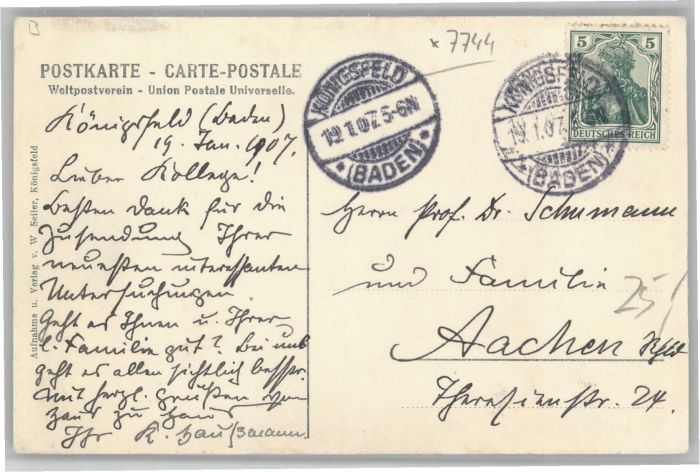 B
* 7744
POSTKARTE - CARTE-POSTALE
Weltpostverein - Union Postale Universelle.
Königsfeld (Baden)
19. Jan. 1907.
Lieber Kollege!
Besten Dank für die
Zusendung Ihrer
neuesten interessanten
Untersuchungen.
Geht es Ihnen u. Ihrer
l. Familie gut? Bei uns
geht es allen sichtlich besser.
Mit herzl. Grüßen von
Haus zu Haus
Ihr K.
Aufnahme u. Verlag v. W. Seiler, Königsfeld
KÖNIGSFELD
19.1.07.5-6N
* (BADEN) *
KÖNIGSFELD
19.1.07.
* (BADEN) *
5 5
DEUTSCHES REICH
Herrn Prof. Dr. Schumann
und Familie
25
Aachen
Theresienstr. 24.